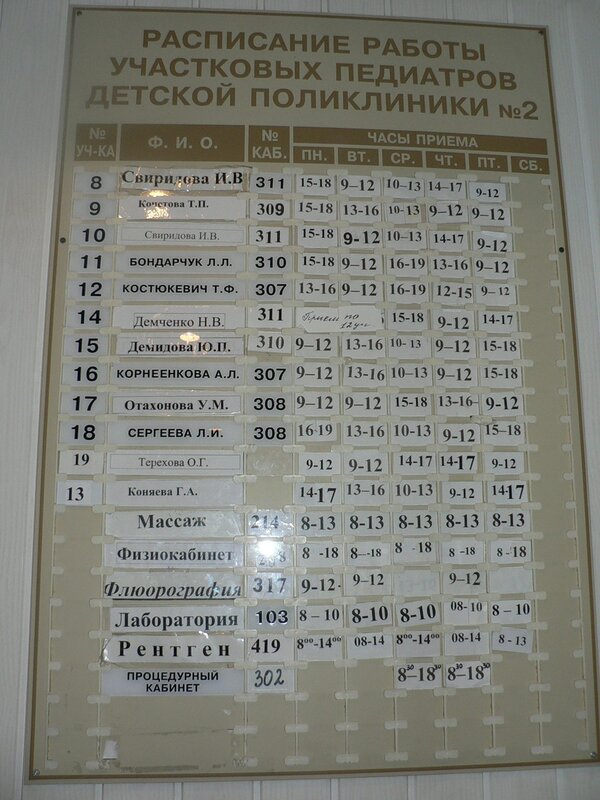 РАСПИСАНИЕ РАБОТЫ
УЧАСТКОВЫХ ПЕДИАТРОВ
ДЕТСКОЙ ПОЛИКЛИНИКИ №2
№ УЧ-КА Ф. И. О. № КАБ. ЧАСЫ ПРИЕМА
ПН. ВТ. СР. ЧТ. ПТ. СБ.
8 Свиридова И.В 311 15-18 9–12 10–13 14–17 9-12
9 Т.П. 309 15-18 13-16 10-13 9–12 9–12
10 Свиридова И.В. 311 15-18 9-12 10–13 14-17 9-12
11 БОНДАРЧУК Л.Л. 310 15-18 9–12 16-19 13-16 9–12
12 КОСТЮКЕВИЧ Т.Ф. 307 13-16 9–12 16-19 12-15 9–12
14 Демченко Н.В. 311 Прием по 12 уч 15-18 9–12 14-17
15 Демидова Ю.П. 310 9–12 13-16 10-13 9–12 15-18
16 КОРНЕЕНКОВА А.Л. 307 9–12 13-16 10–13 9–12 15-18
17 Отахонова У.М. 308 9–12 9–12 15-18 13–16 9-12
18 СЕРГЕЕВА Л.И. 308 16-19 13-16 10-13 9–12 15–18
19 Терехова О.Г. 9-12 9–12 14-17 14-17 9-12
13 Коняева Г.А. 14-17 13–16 10-13 9-12 14-17
Массаж 214 8-13 8-13 8-13 8-13 8-13
Физиокабинет 8 -18 8–-18 8 -18 8 -18 8 -18
Флюорография 317 9-12 9–12 9–12
Лаборатория 103 8 – 10 8-10 8-10 08-10 8 – 10
Рентген 419 8⁰⁰-14⁰⁰ 08-14 8⁰⁰-14⁰⁰ 08-14 8 - 13
ПРОЦЕДУРНЫЙ
КАБИНЕТ 302 8³⁰–18³⁰ 8³⁰–18³⁰